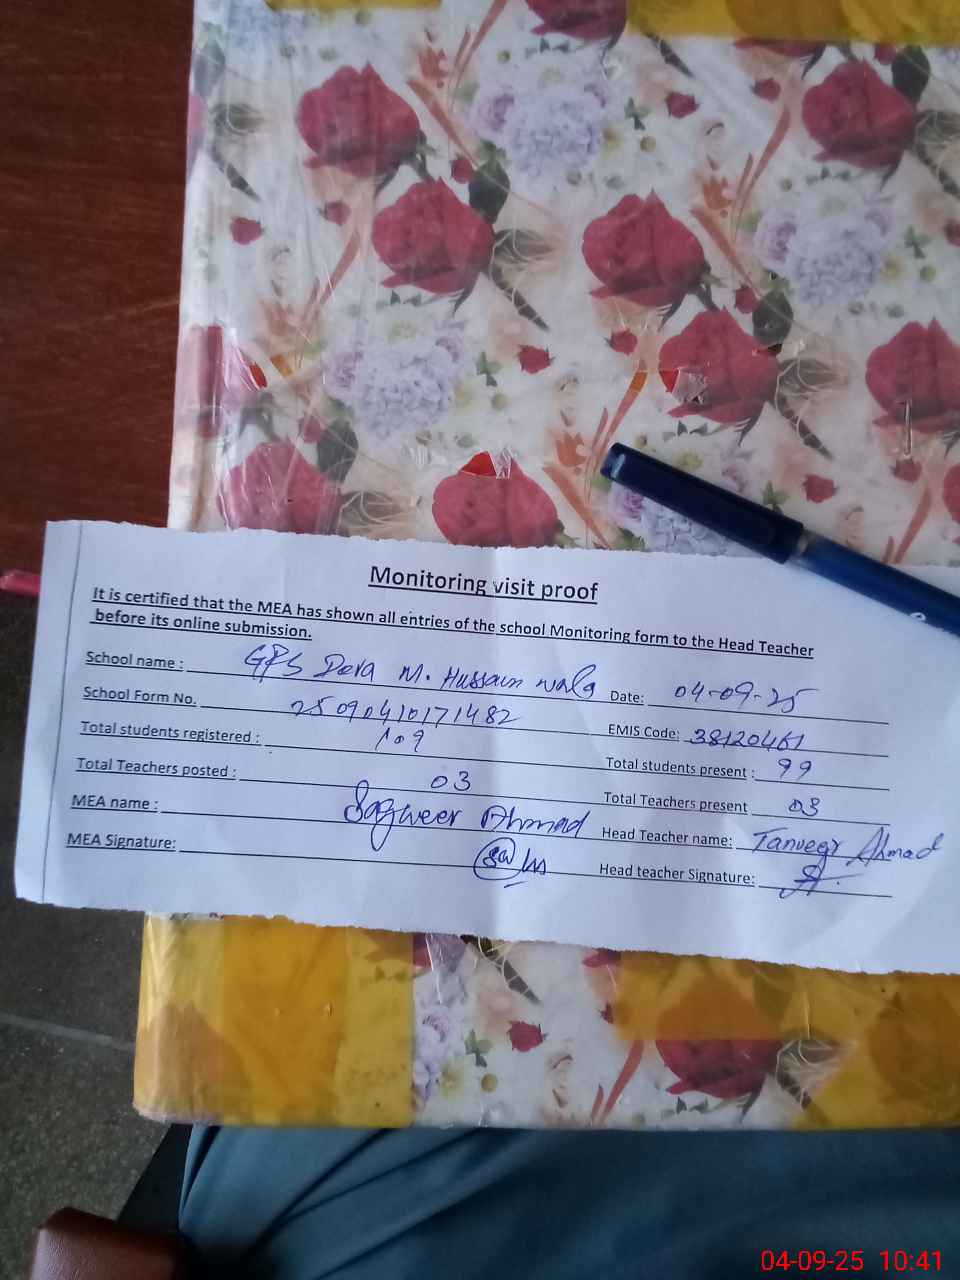 Monitoring visit proof
It is certified that the MEA has shown all entries of the school Monitoring form to the Head Teacher
before its online submission.
School name : GPS Dera M. Hussain wala Date: 04-09-25
School Form No. 25090410171482 EMIS Code: 38120461
Total students registered : 109 Total students present : 99
Total Teachers posted : 03 Total Teachers present 03
MEA name : Sagheer Ahmad Head Teacher name: Tanveer Ahmad
MEA Signature: Head teacher Signature:
04-09-25 10:41